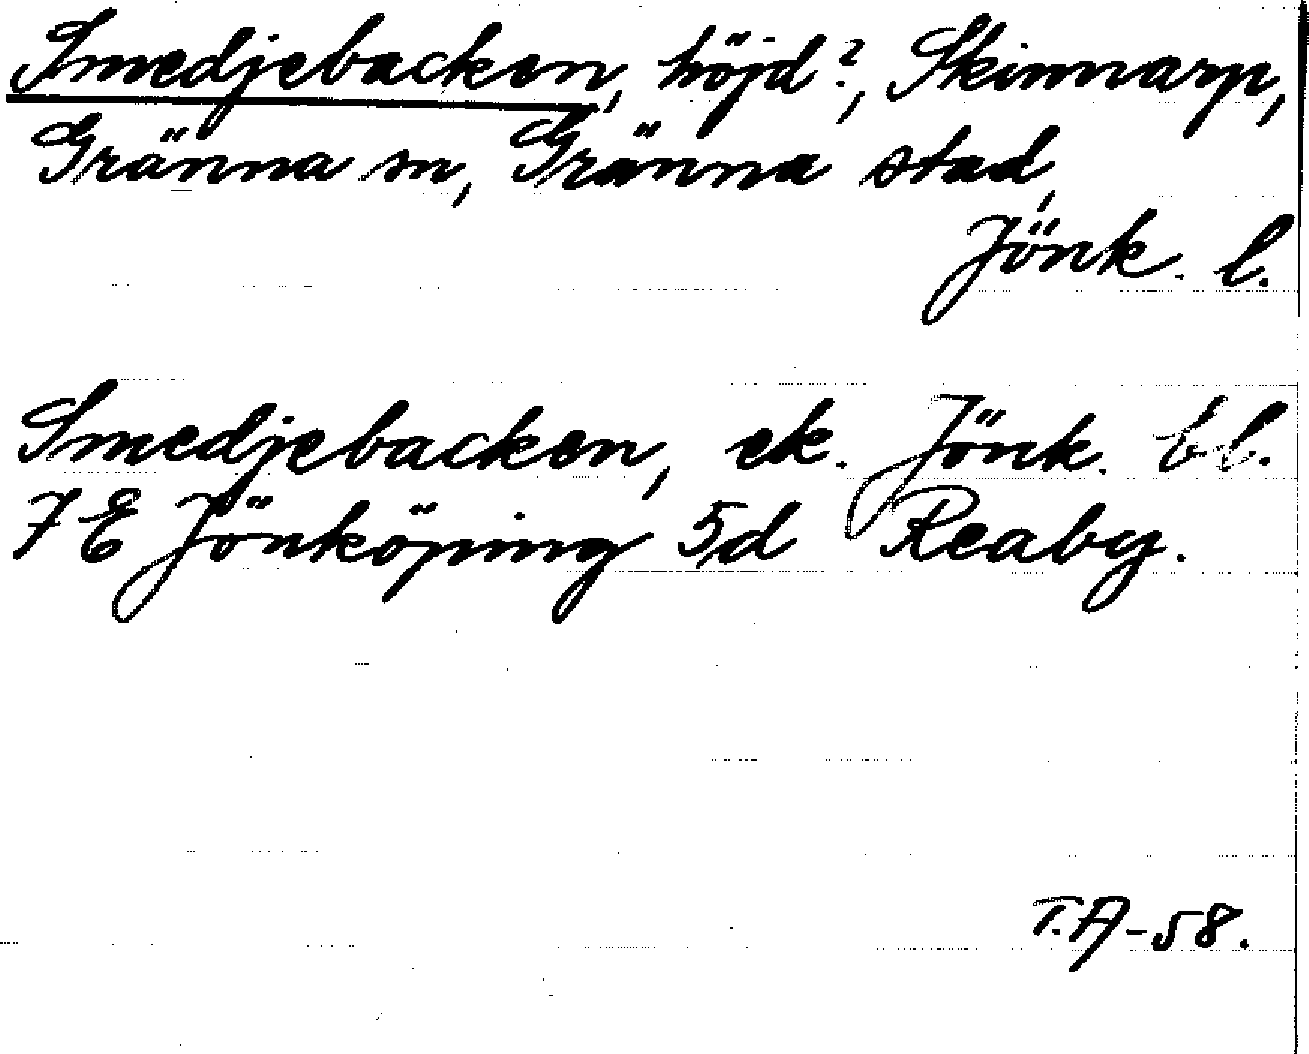 Smedjebacken, höjd?, Skinnarp,
Gränna sn, Gränna stad,
Jönk. l.
Smedjebacken, ek. Jönk. bl.
7 E Jönköping 5d Reaby.
T.A-58.